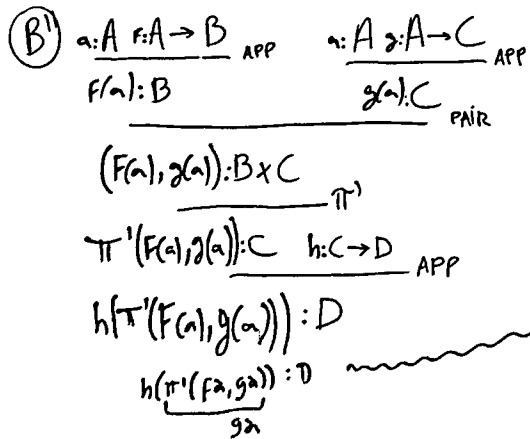 B'' a:A f:A→B APP a:A g:A→C APP
f(a):B g(a):C PAIR
(f(a),g(a)):B×C π'
π'(f(a),g(a)):C h:C→D APP
h(π'(f(a),g(a))):D
h(π'(fa,ga)):D
ga